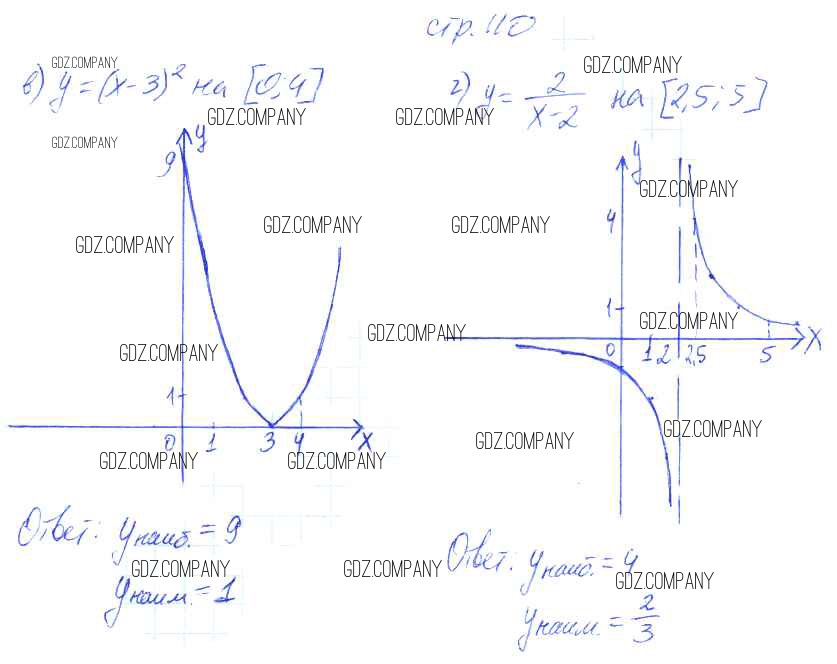 стр. 110
GDZ.COMPANY
GDZ.COMPANY
в) y = (x-3)² на [0;4]
г) y = 2/(x-2) на [2,5; 5]
GDZ.COMPANY
GDZ.COMPANY
GDZ.COMPANY
y
9
y
GDZ.COMPANY
GDZ.COMPANY
GDZ.COMPANY
GDZ.COMPANY
4
1
GDZ.COMPANY
GDZ.COMPANY
x
0 1 2 2,5 5
GDZ.COMPANY
1
0 1 3 4 x
GDZ.COMPANY
GDZ.COMPANY
GDZ.COMPANY
GDZ.COMPANY
Ответ: yнаиб. = 9
yнаим. = 1
GDZ.COMPANY
GDZ.COMPANY
Ответ: yнаиб. = 4
GDZ.COMPANY
yнаим. = 2/3